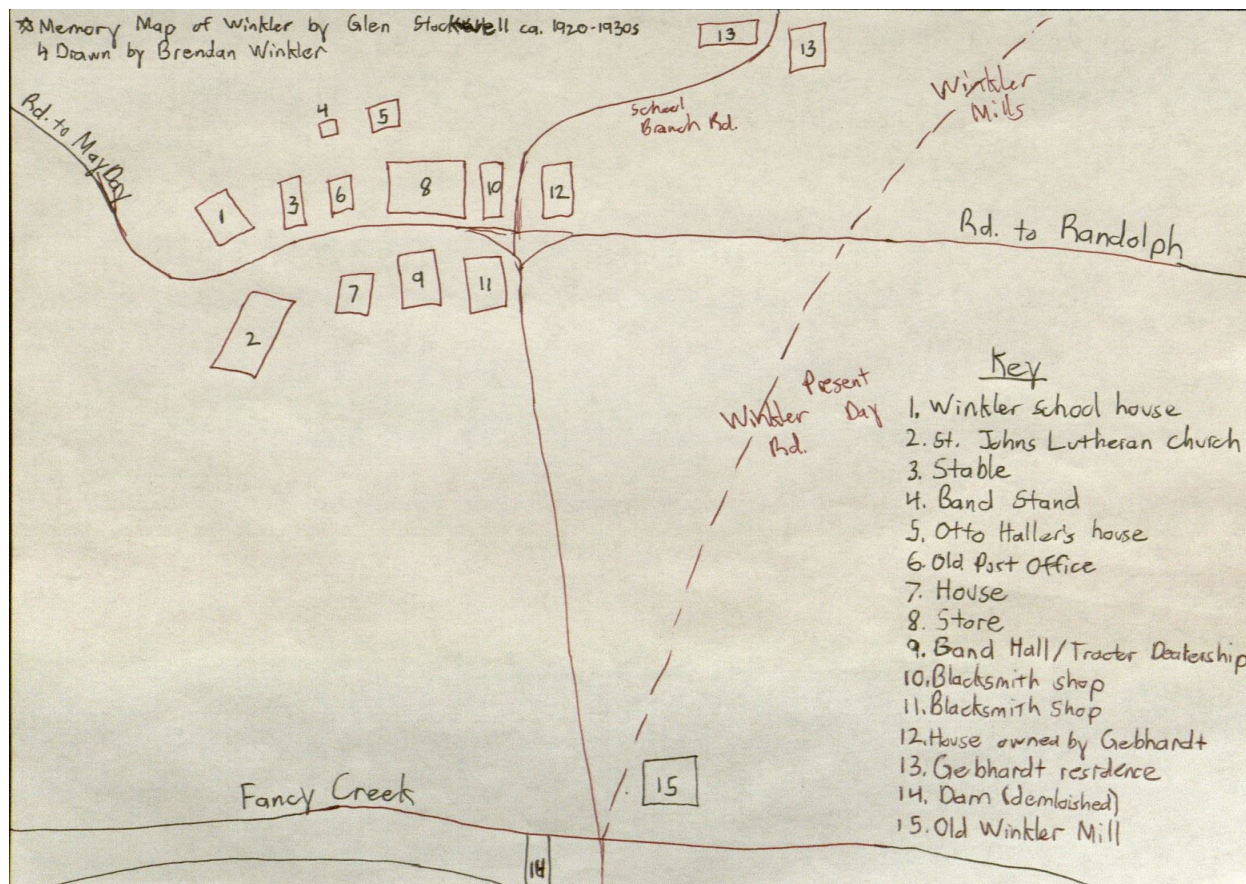 ☆ Memory Map of Winkler by Glen Stockwell ca. 1920-1930s
↳ Drawn by Brendan Winkler
13
13
Winkler
Mills
Rd. to May Day
4
5
School
Branch Rd.
1
3
6
8
10
12
Rd. to Randolph
2
7
9
11
Present
Day
Winkler
Rd.
Key
1. Winkler school house
2. St. Johns Lutheran church
3. Stable
4. Band Stand
5. Otto Haller's house
6. Old Post Office
7. House
8. Store
9. Band Hall/Tractor Dealership
10. Blacksmith shop
11. Blacksmith Shop
12. House owned by Gebhardt
13. Gebhardt residence
14. Dam (demloished)
15. Old Winkler Mill
Fancy Creek
15
14